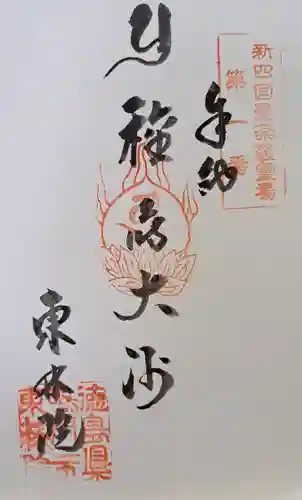 新四国曼荼羅霊場
第一番
奉納
種蒔大師
東林院
徳島県